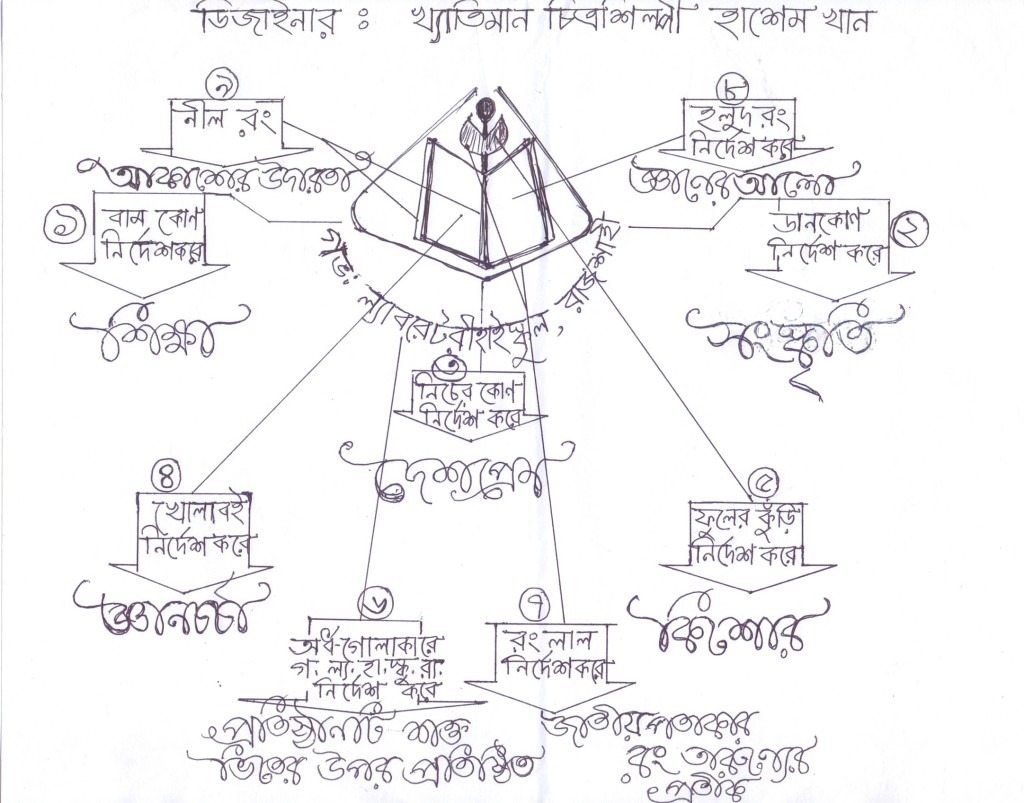 ডিজাইনার : খ্যাতিমান চিত্রশিল্পী হাশেম খান
৯
নীল রং
আকাশের উদারতা
৮
হলুদ রং
নির্দেশ করে
জ্ঞানের আলো
১
বাম কোণ
নির্দেশ করে
শিক্ষা
২
ডান কোণ
নির্দেশ করে
সংস্কৃতি
গভ: ল্যাবরেটরী হাই স্কুল, রাজশাহী
৩
নিচের কোণ
নির্দেশ করে
দেশপ্রেম
৪
খোলা বই
নির্দেশ করে
জ্ঞানচর্চা
৫
ফুলের কুঁড়ি
নির্দেশ করে
কিশোর
৬
অর্ধ-গোলাকারে
গ. ল্যা. হা. স্কু. রা.
নির্দেশ করে
প্রতিষ্ঠানটি শক্ত
ভিতের উপর প্রতিষ্ঠিত
৭
রং লাল
নির্দেশ করে
জাতীয় পতাকার
রং তারুণ্যের
প্রতীক